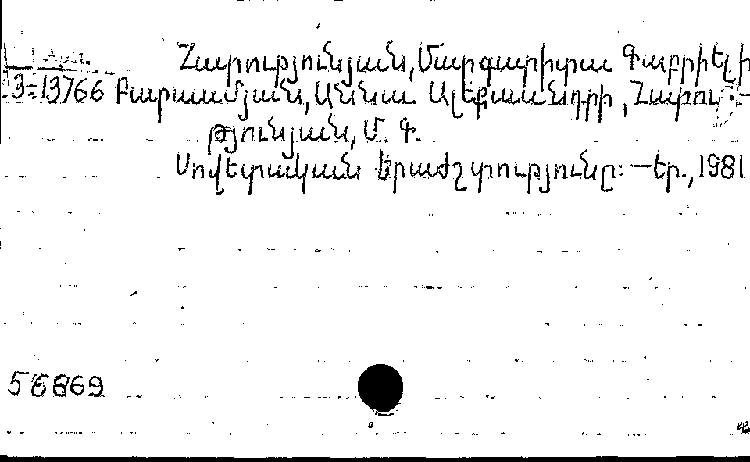 Հարությունյան, Մարգարիտա Գաբրիելի
3-13766 Բարսամյան, Աննա Ալեքսանդրի, Հարու-
թյունյան, Մ. Գ.
Սովետական երաժշտությունը: — Եր., 1981
56869